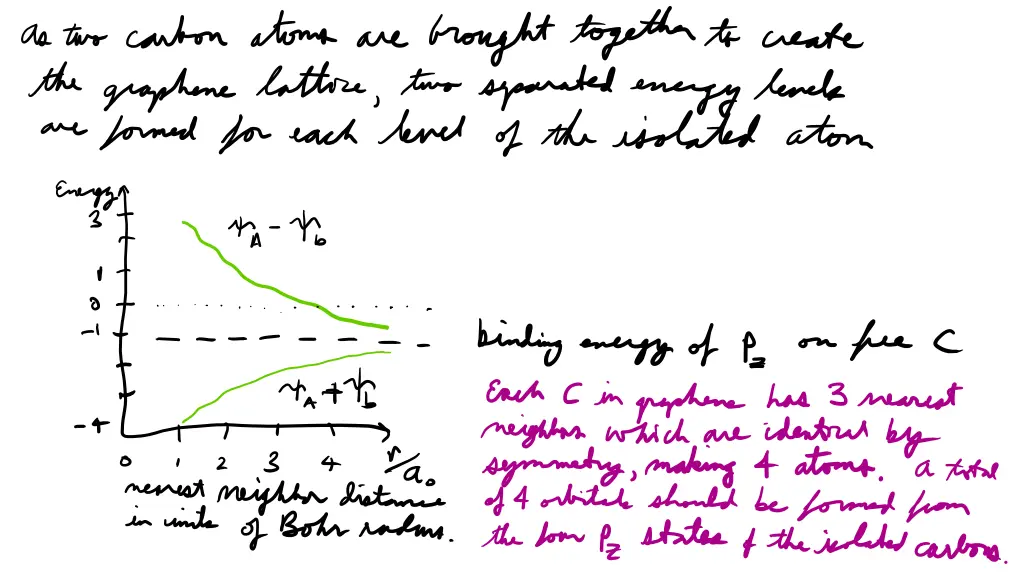 as two carbon atoms are brought together to create
the graphene lattice, two separated energy levels
are formed for each level of the isolated atom
Energy
3
1
0
-1
-4
ψA - ψb
ψA + ψb
0 1 2 3 4 r/a₀
nearest neighbor distance
in units of Bohr radius.
binding energy of Pz on free C
Each C in graphene has 3 nearest
neighbors which are identical by
symmetry, making 4 atoms. a total
of 4 orbitals should be formed from
the four Pz states of the isolated carbons.